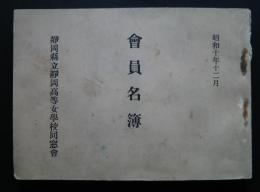 昭和十年十二月
會員名簿
靜岡縣立靜岡高等女學校同窓會